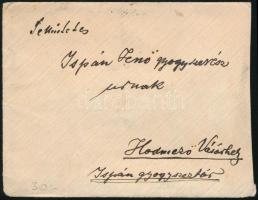 Tekintetes
Ispán Jenő gyogyszerész
urnak
Hodmező Vásárhely
Ispán gyogyszertár
30.-